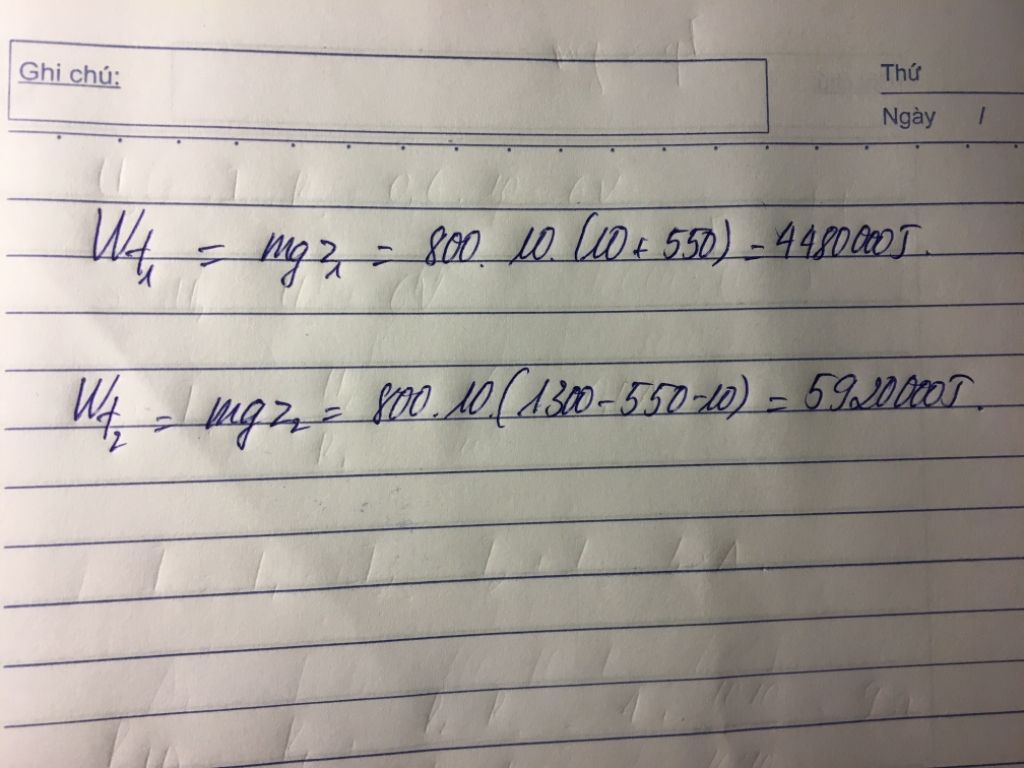 Ghi chú:
Thứ
Ngày /
Wt₁ = mgz₁ = 800. 10. (10 + 550) = 4480000J.
Wt₂ = mgz₂ = 800.10.(1300-550-10) = 5920000J.